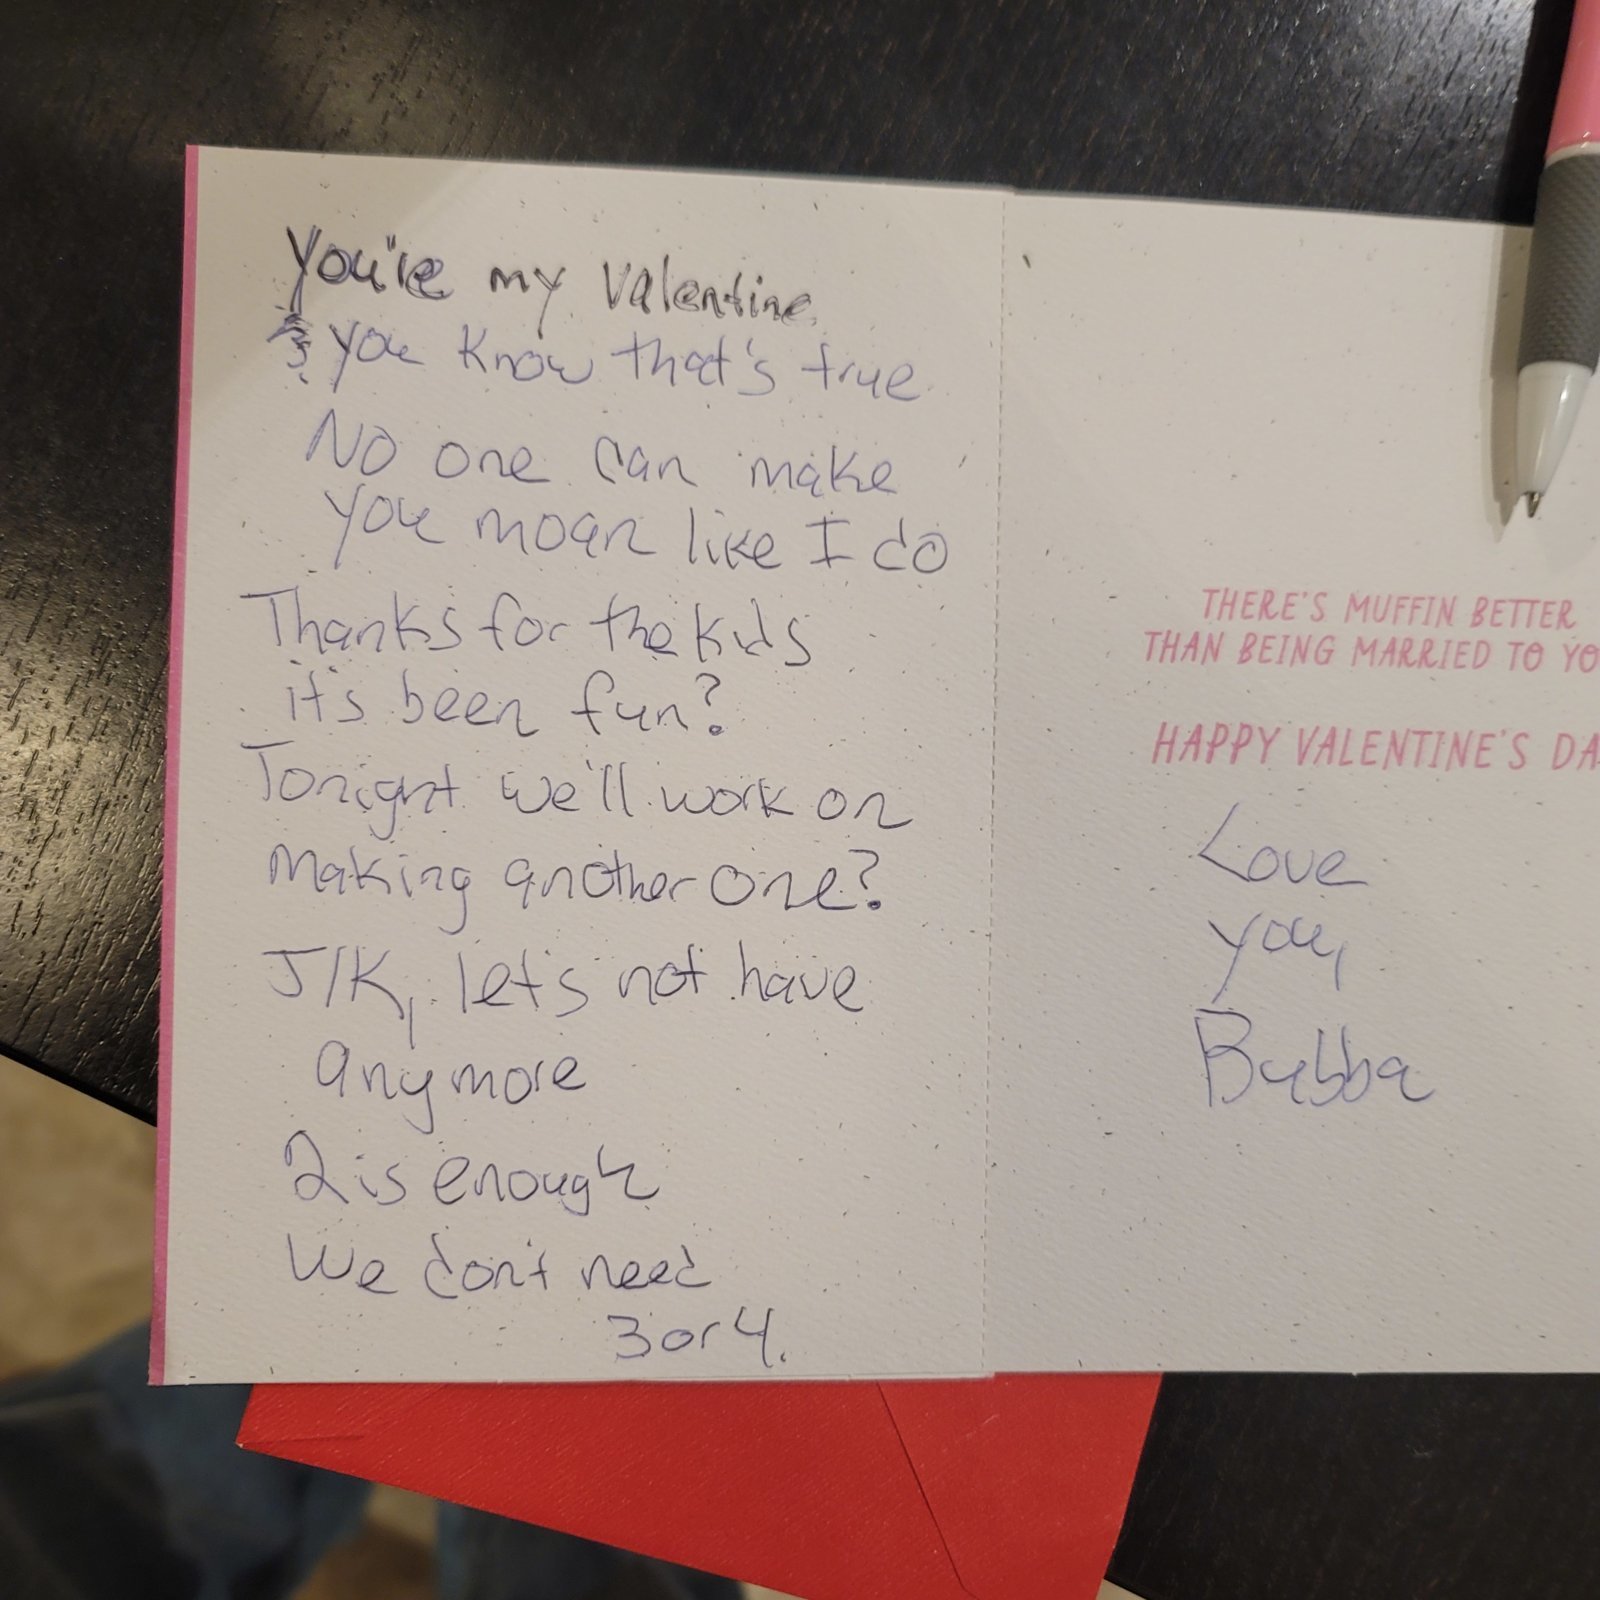 You're my Valentine
you know that's true
No one can make
you moan like I do
Thanks for the kids
it's been fun?
Tonight we'll work on
making another one?
J/K, let's not have
anymore
2 is enough
We don't need
3 or 4.
THERE'S MUFFIN BETTER
THAN BEING MARRIED TO YO
HAPPY VALENTINE'S DA
Love
you,
Bubba